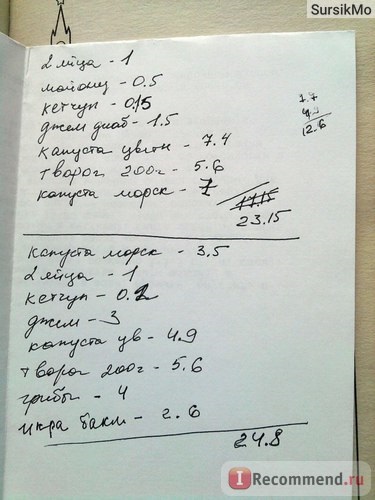 SursikMo
2 яйца - 1
майонез - 0.5
кетчуп - 0.15
джем диаб - 1.5
капуста цветн - 7.4
творог 200г - 5.6
капуста морск - 7
17.15
23.15
4.9
12.6
капуста морск - 3.5
2 яйца - 1
кетчуп - 0.2
джем - 3
капуста цв - 4.9
творог 200г - 5.6
грибы - 4
икра бакл - 2.6
24.8
iRecommend.ru